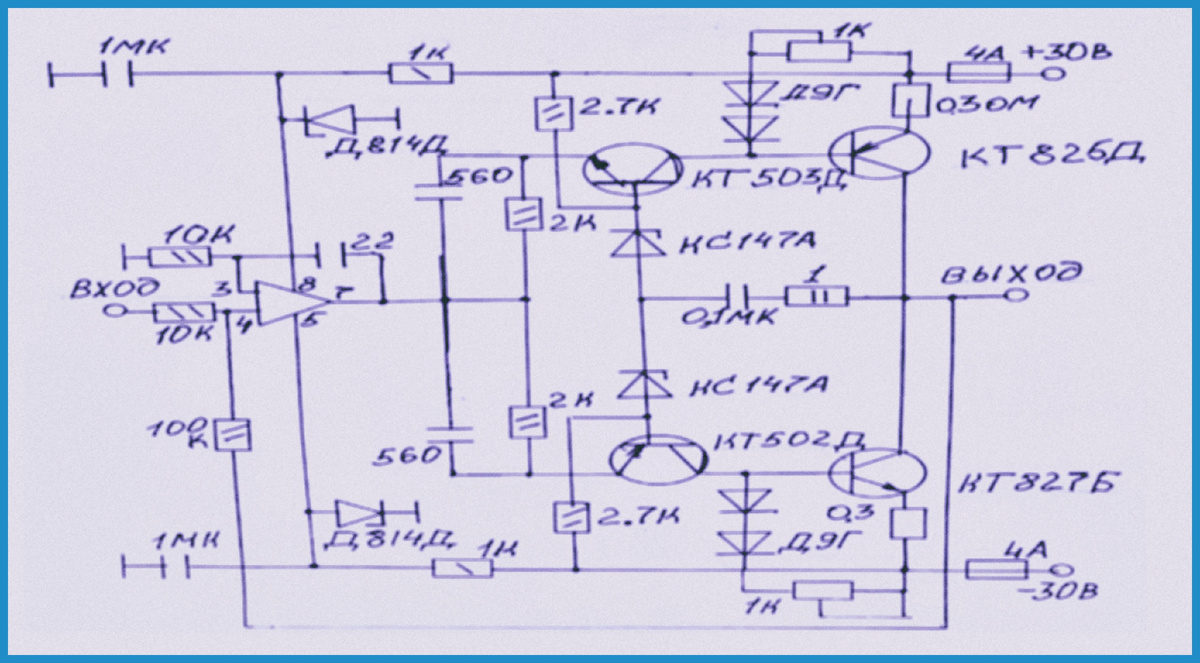 1МК
1К
1К
4А
+30В
2.7К
Д9Г
0,3ОМ
Д814Д
КТ826Д
560
КТ503Д
2К
10К
22
КС147А
ВХОД
3
8
7
1
ВЫХОД
4
5
10К
0,1МК
КС147А
2К
100
К
КТ502Д
560
КТ827Б
0,3
2.7К
1МК
Д814Д
1К
Д9Г
4А
-30В
1К